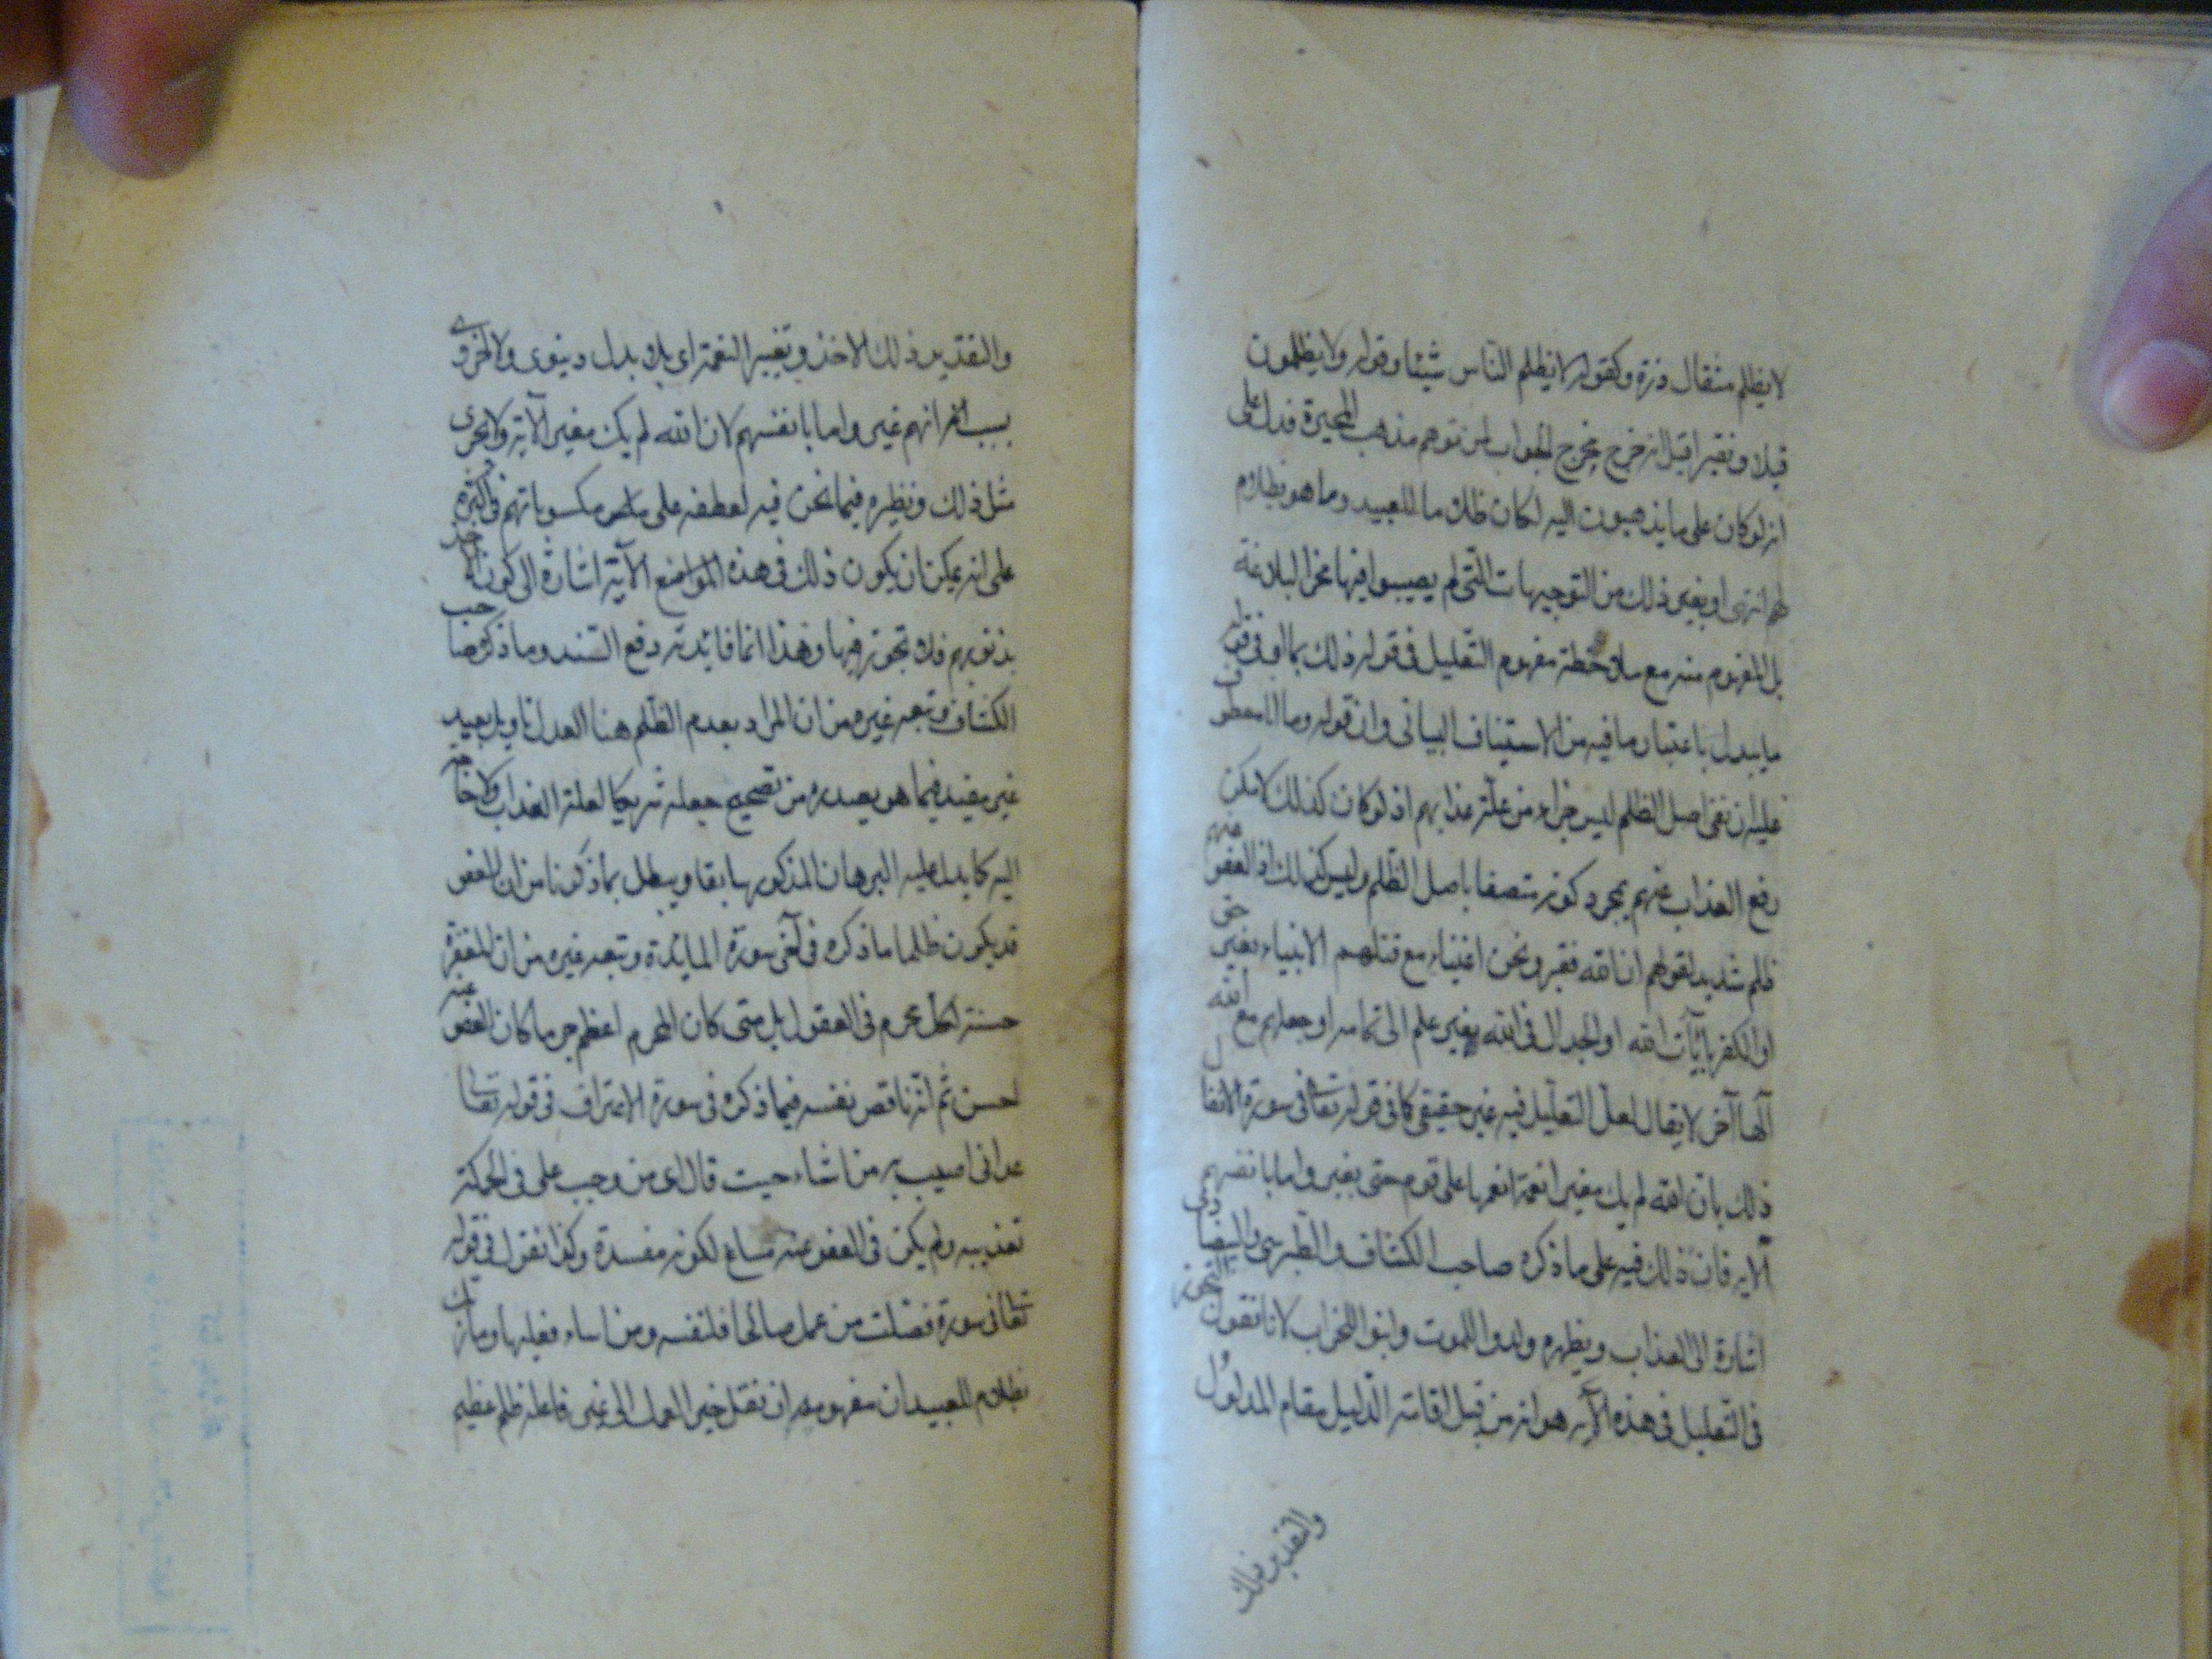 لا يظلم مثقال ذرة وكقوله لا يظلم الناس شيئا وقوله ولا يظلمون
قيلا ونقيرا قيل انه خرج مخرج الجواب لمن توهم مذهب المجبرة فدل على
انه لو كان على ما يذهبون اليه لكان ظلاما للعبيد وما هو بظلام
لهم انتهى او بغير ذلك من التوجيهات التى لم يصيبوا فيها البلاغة
بل المفهوم منه مع ملاحظة مفهوم التعليل فى قوله ذلك بما او فى قوله
ما يبدل باعتبار ما فيه من الاستيناف البيانى وان قوله وما انا معطوف
عليه ان نفى اصل الظلم ليس جزاء من علة عذابهم اذ لو كان كذلك لامكن
رفع العذاب عنهم بمجرد كونه متصفا باصل الظلم وليس كذلك اذ العفو عنهم
ظلم شديد لقولهم ان الله فقير ونحن اغنياء مع قتلهم الانبياء بغير حق
او الكفر بايآت الله او الجدال فى الله بغير علم الى تمامه او جعلهم مع الله
آلها آخر لا يقال لعل التعليل فيه غير حقيقى كما فى قوله تعالى فى سورة الانفال
ذلك بان الله لم يك مغيرا نعمة انعمها على قوم حتى يغيروا ما بانفسهم
الآية فان ذلك فيه على ما ذكره صاحب الكشاف والطبرسى والبيضاوى
اشارة الى العذاب ونظيره ولدوا للموت وابنوا للخراب لانا نقول التجوز
فى التعليل فى هذه الآية هو انه من قبيل اقامة الدليل مقام المدلول
والتقدير ذلك
والتقدير ذلك الاخذ وتغيير النعمة اى بلا بدل دنيوى ولا اخروى
بسبب انهم غيروا ما بانفسهم لان الله لم يك مغيرا الآية ولا يجرى
مثل ذلك ونظيره فيما نحن فيه لعطفه على مكسوباتهم فى
على انه يمكن ان يكون ذلك فى هذه المواضع الآية اشارة الى كون الاخذ
بذنوبهم فلا تجوز فيها وهذا انما فايدته دفع السند وما ذكره صاحب
الكشاف وتبعه غيره من ان المراد بعدم الظلم هنا العدل تاويل بعيد
غير مفيد فيما هو بصدده من تصحيح جعله شريكا لعلة العذاب ولا حاجة
اليه كما يدل عليه البرهان المذكور سابقا ويبطل بما ذكرنا من ان العفو
قد يكون ظلما ما ذكره فى آخر سورة المايدة وتبعه غيره من ان المغفرة
حسنة لكل مجرم فى العقول بل متى كان المجرم اعظم جرما كان العفو عنه
احسن ثم انه ناقض نفسه فيما ذكره فى سورة الاعراف فى قوله تعالى
عذابى اصيب به من اشاء حيث قال اى من وجب على فى الحكمة
تعذيبه ولم يكن فى العفو عنه مساغ لكونه مفسدة وكذا نقول فى قوله
تعالى فى سورة فصلت من عمل صالحا فلنفسه ومن اساء فعليها وما ربك
بظلام للعبيد ان مفهومه ان نقل خير العمل الى غير فاعله ظلم عظيم